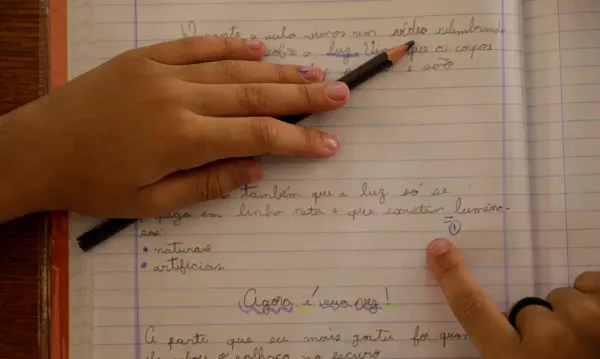 Durante a aula vimos um vídeo relembrando
sobre a luz. Vimos que os corpos
e são
também que a luz só se
propaga em linha reta e que existem lumino-
sos:
①
• naturais
• artificiais
Agora é sua vez!
A parte que eu mais gostei foi quan
o palhaço no escuro